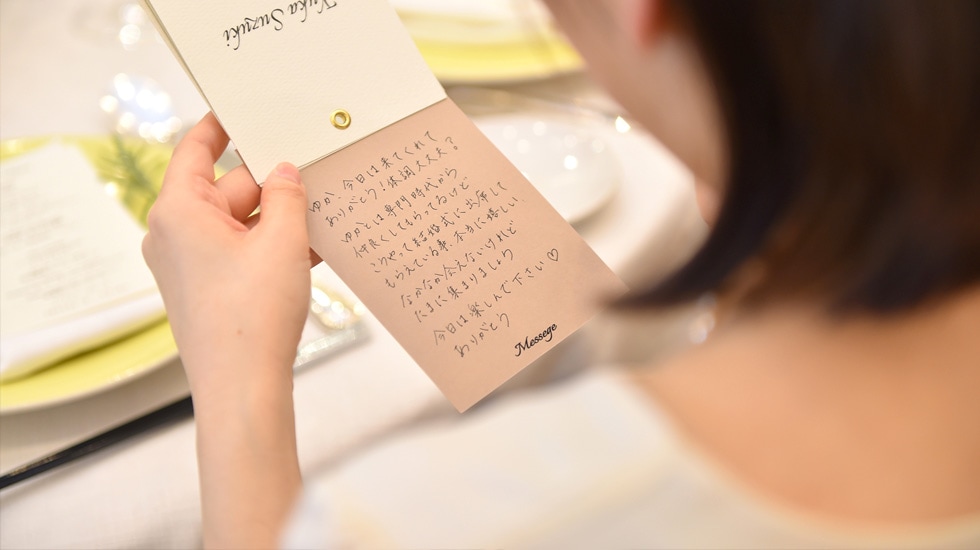 Yuka Suzuki
ゆか、今日は来てくれて
ありがとう！体調大丈夫？
ゆかとは専門時代から
仲良くしてもらってるけど
こうやって結婚式に出席して
もらえている事、本当に嬉しい。
なかなか会えないけれど
たまに集まりましょう
今日は楽しんで下さい♡
ありがとう
Messege